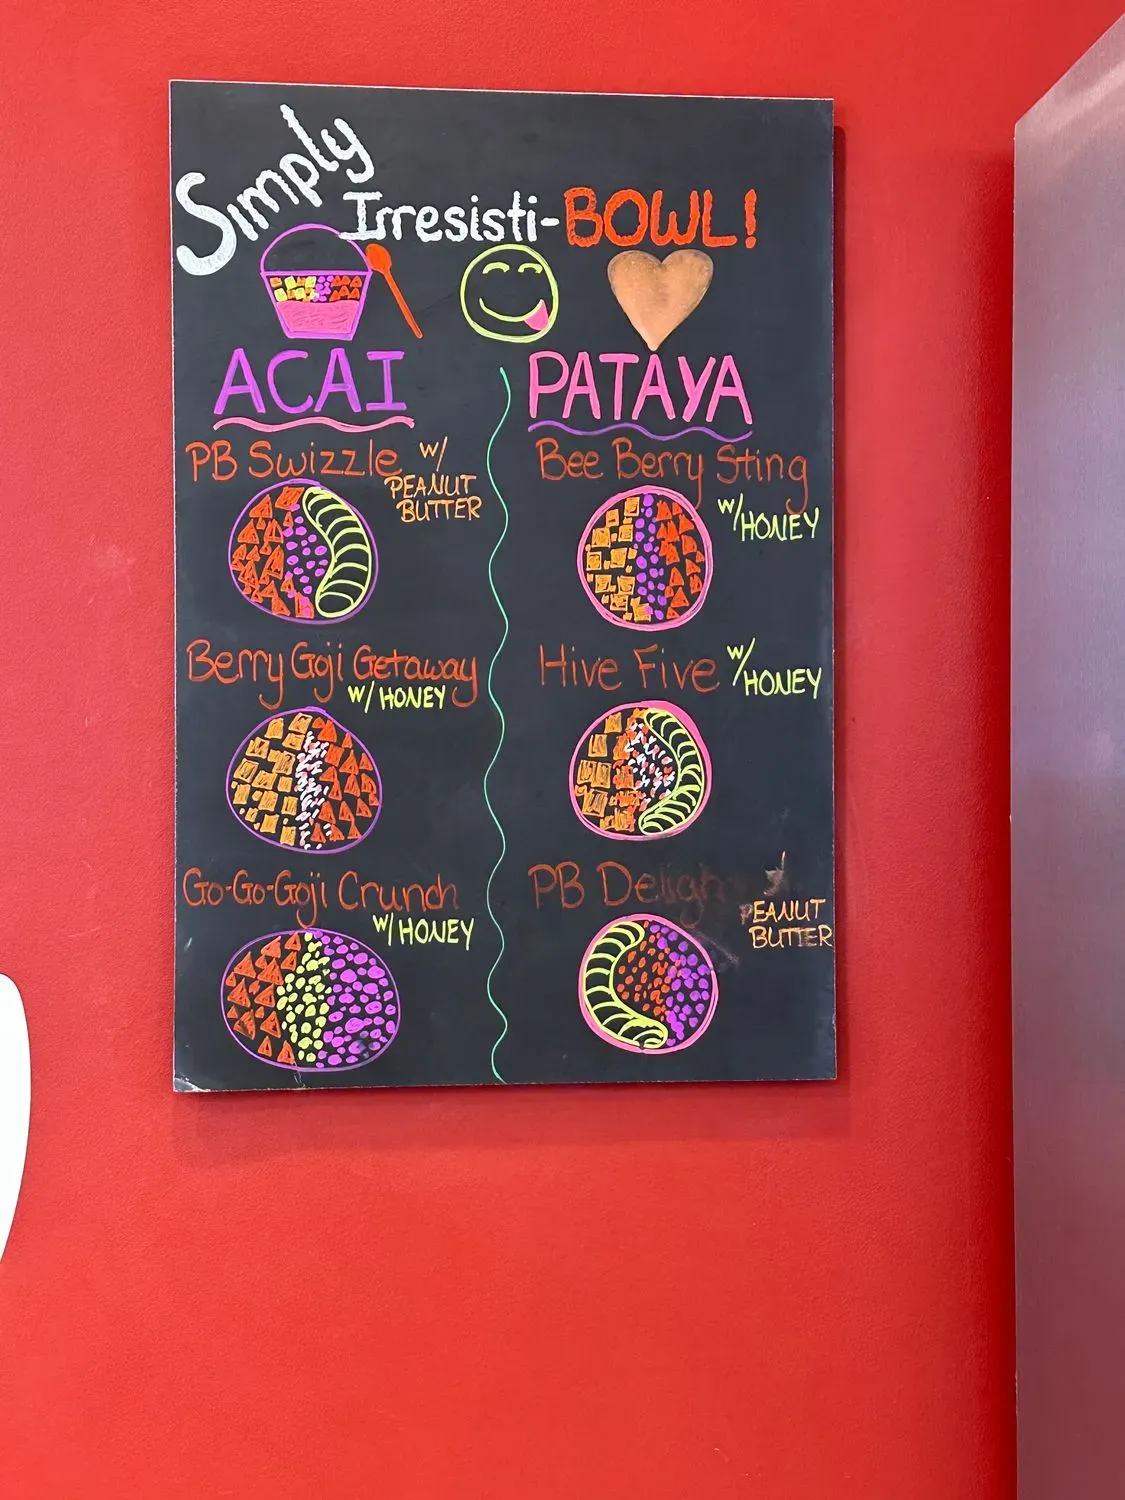 Simply
Irresisti-BOWL!
ACAI
PB Swizzle w/
PEANUT
BUTTER
Berry Goji Getaway
w/ HONEY
Go-Go-Goji Crunch
w/ HONEY
PATAYA
Bee Berry Sting
w/HONEY
Hive Five w/HONEY
PB
PEANUT
BUTTER